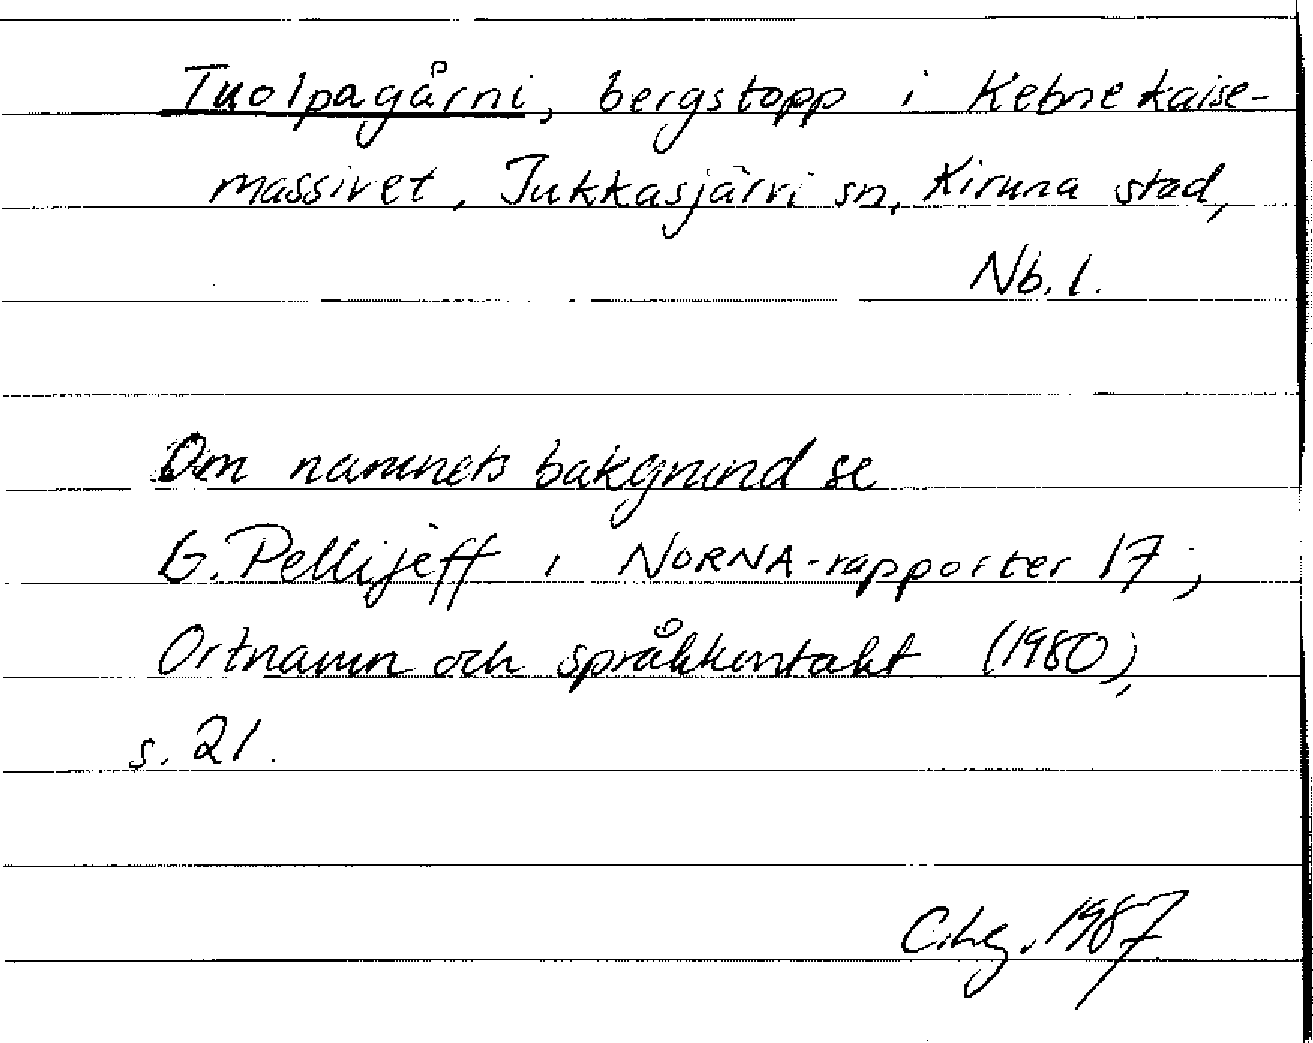 Tuolpagårni, bergstopp i Kebnekaise-
massivet, Jukkasjärvi sn, Kiruna stad,
Nb. l.
Om namnets bakgrund se
G. Pellijeff i NORNA-rapporter 17;
Ortnamn och språkkontakt (1980),
s. 21.
1987